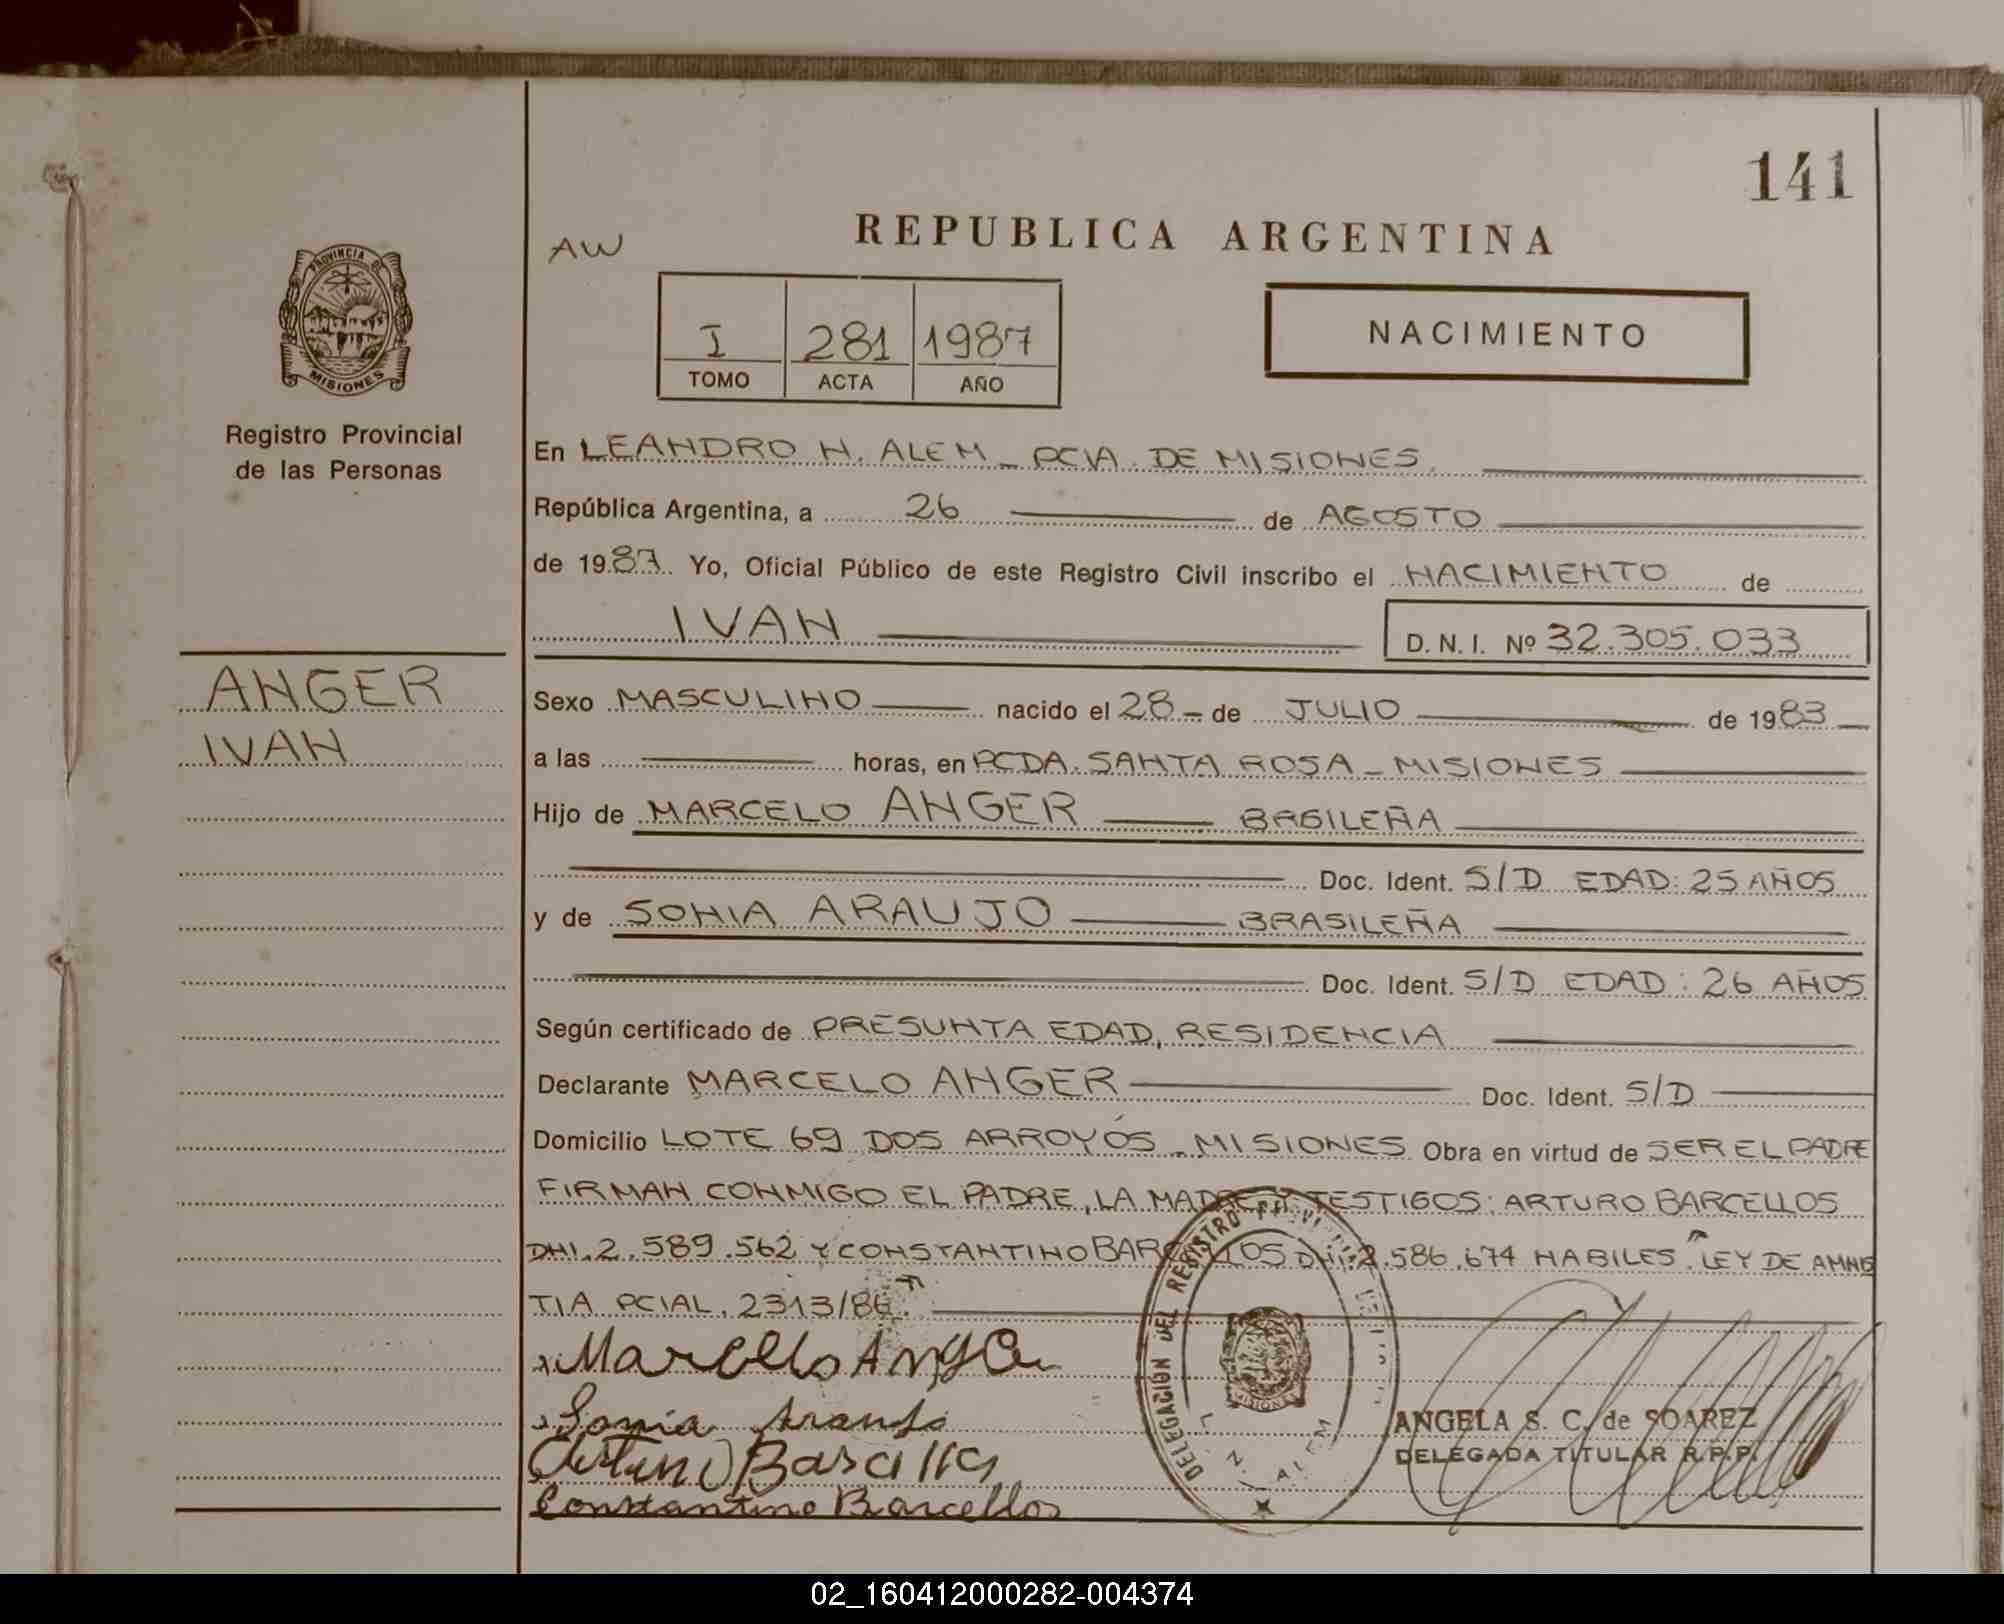 141
REPUBLICA ARGENTINA
AW
PROVINCIA DE
MISIONES
I 281 1987
TOMO ACTA AÑO
NACIMIENTO
Registro Provincial
de las Personas
ANGER
IVAN
En LEANDRO N. ALEM _ PCIA. DE MISIONES.
República Argentina, a 26 de AGOSTO
de 1987. Yo, Oficial Público de este Registro Civil inscribo el NACIMIENTO de
IVAN D. N. I. Nº 32.305.033
Sexo MASCULINO nacido el 28 - de JULIO de 1983
a las horas, en PCDA. SANTA ROSA _ MISIONES
Hijo de MARCELO ANGER BRASILEÑA
Doc. Ident. S/D EDAD: 25 AÑOS
y de SONIA ARAUJO BRASILEÑA
Doc. Ident. S/D EDAD: 26 AÑOS
Según certificado de PRESUNTA EDAD, RESIDENCIA
Declarante MARCELO ANGER Doc. Ident. S/D
Domicilio LOTE 69 DOS ARROYOS _ MISIONES Obra en virtud de SER EL PADRE
FIRMAN CONMIGO EL PADRE, LA MADRE Y TESTIGOS: ARTURO BARCELLOS
DNI. 2.589.562 Y CONSTANTINO BARCELLOS DNI. 2.586.674 HABILES. "LEY DE AMNIS
TIA PCIAL. 2313/86".
Marcello Anger
Sonia Araujo
Arturo Barcellos
Constantino Barcellos
DELEGACION DEL REGISTRO PROVINCIAL
L. N. ALEM
MISIONES
ANGELA S. C. de SOAREZ
DELEGADA TITULAR R.P.P.
02_160412000282-004374